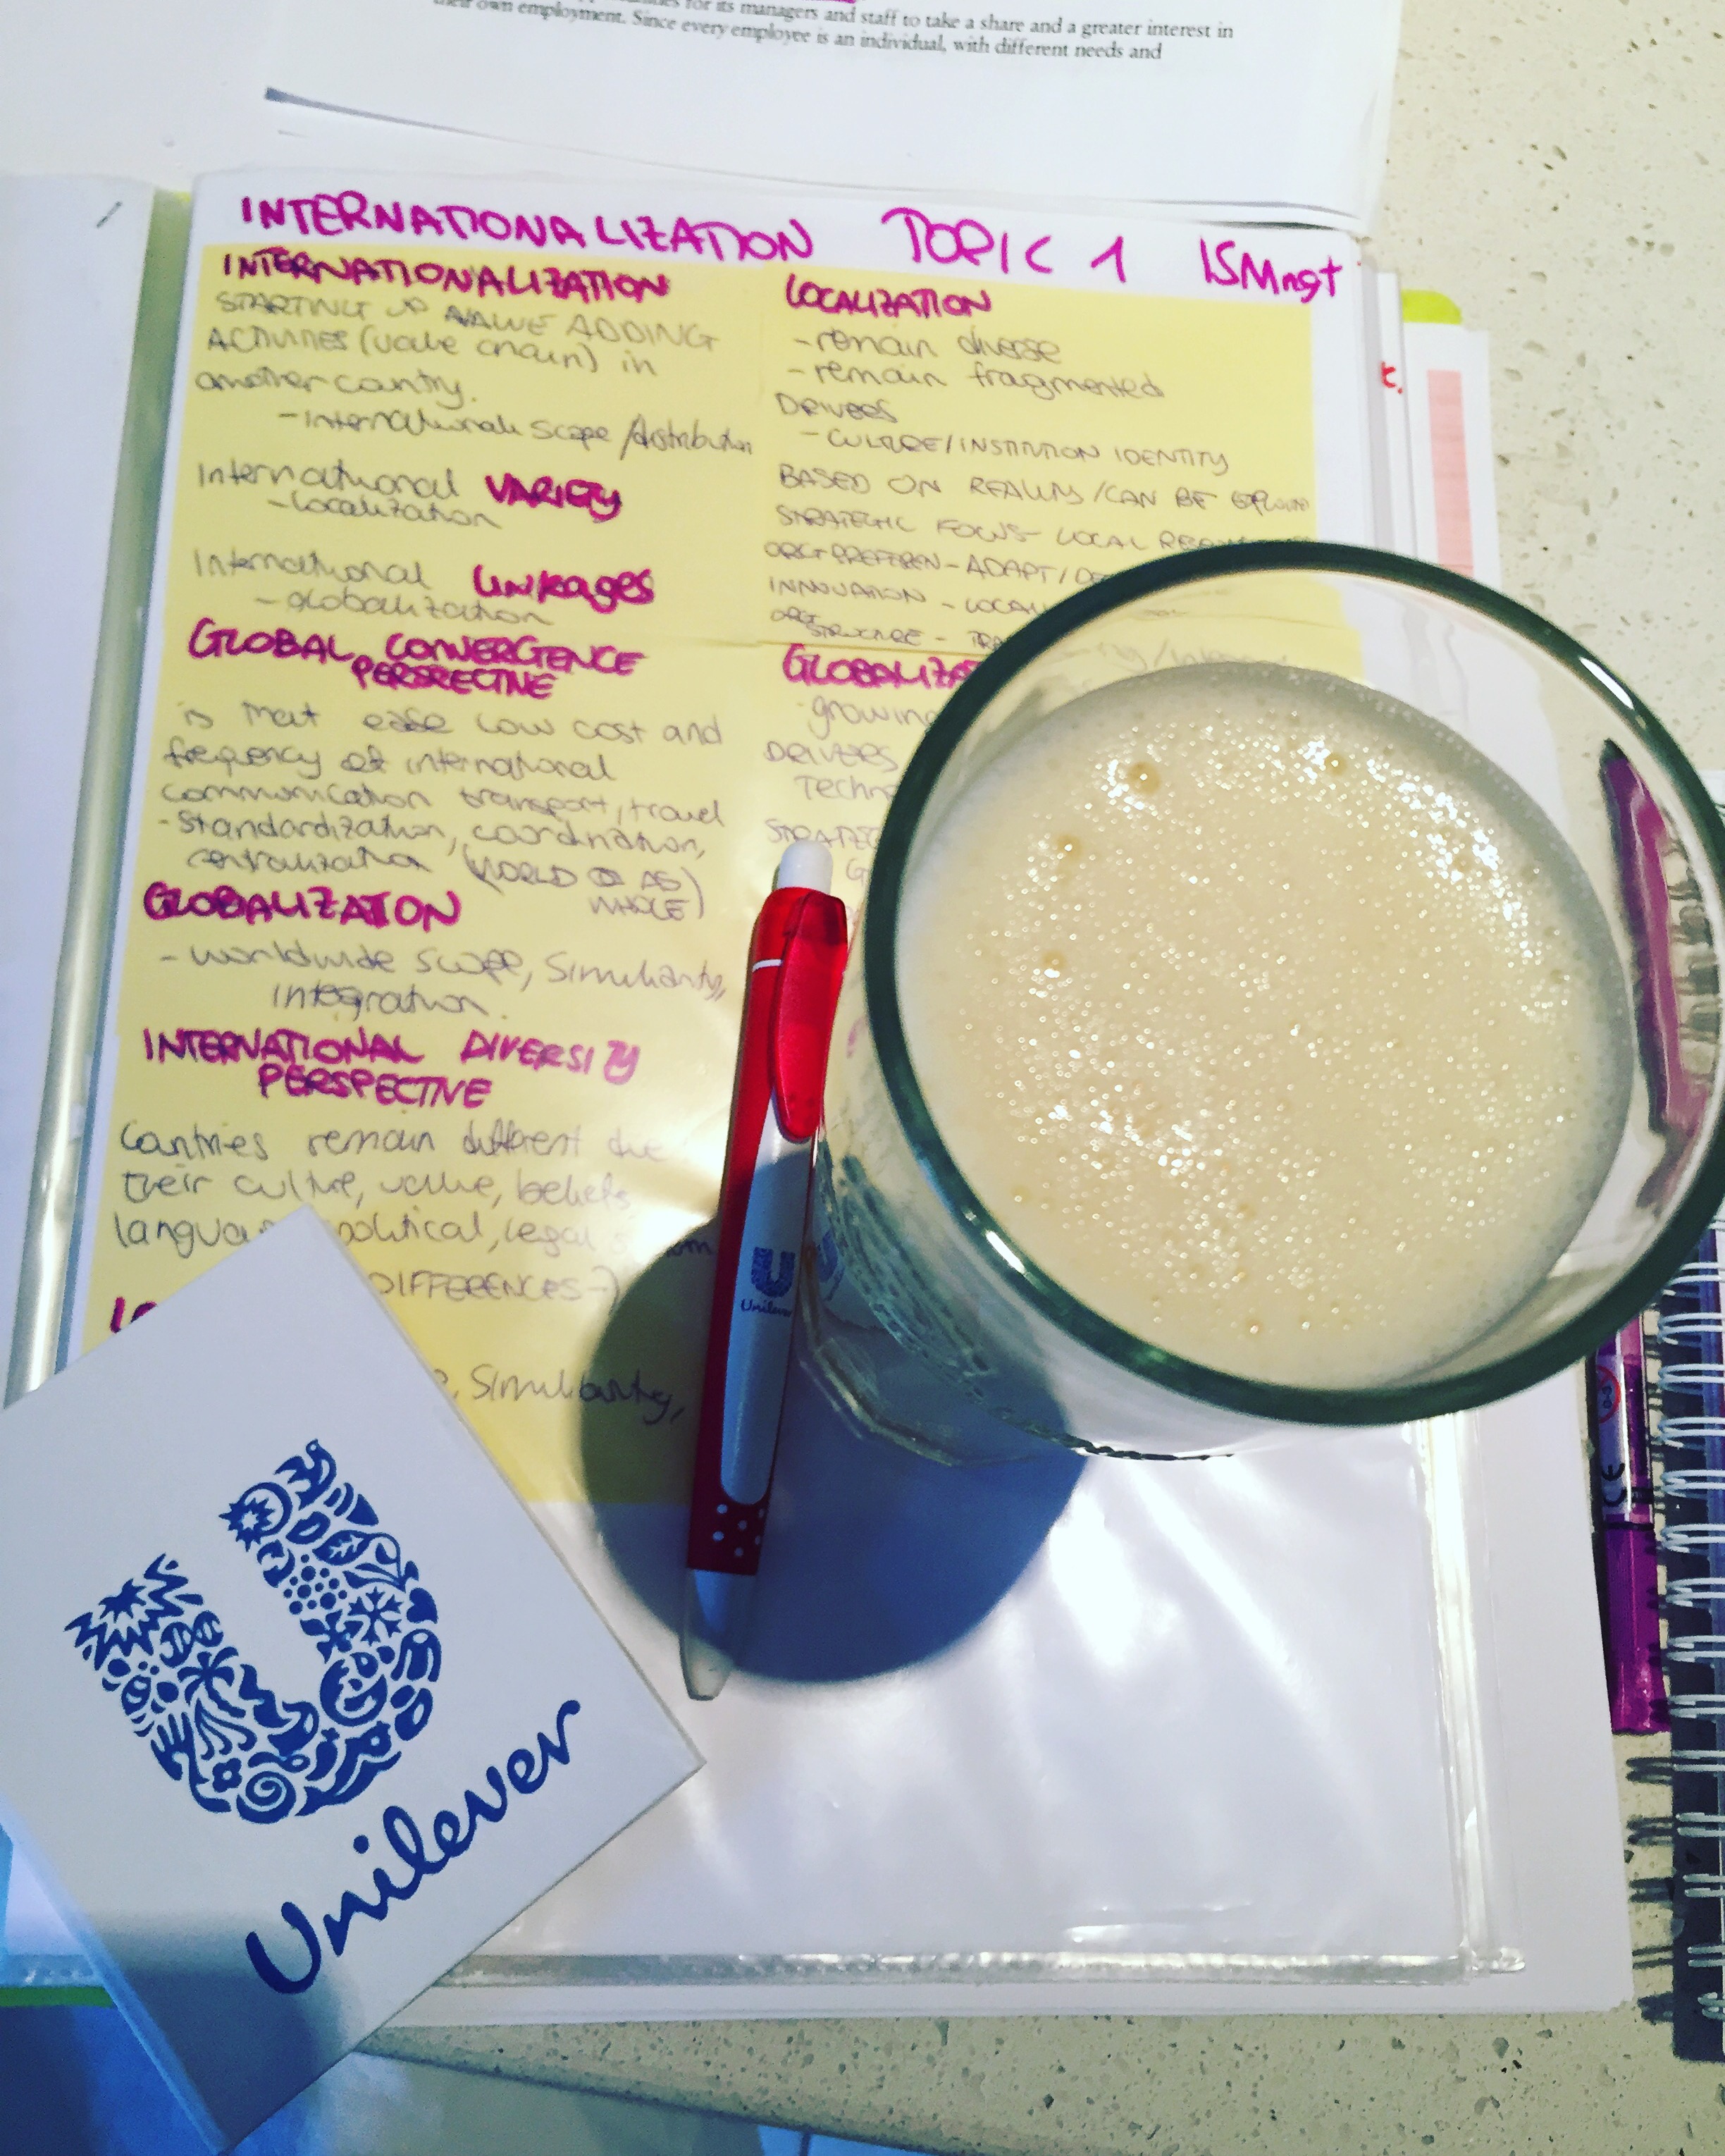 for its managers and staff to take a share and a greater interest in
their own employment. Since every employee is an individual, with different needs and
INTERNATIONALIZATION TOPIC 1 ISMngt
INTERNATIONALIZATION
STARTING UP VALUE ADDING
ACTIVITIES (value chain) in
another country.
- International scope / distribution
International VARIETY
- localization
International LINKAGES
- globalization
GLOBAL CONVERGENCE
PERSPECTIVE
is that ease low cost and
frequency of international
communication transport, travel
- Standardization, coordination,
centralization (WORLD AS
WHOLE)
GLOBALIZATION
- worldwide scope, similiarity,
integration.
INTERNATIONAL DIVERSITY
PERSPECTIVE
Countries remain different due
their culture, value, beliefs,
political, legal
DIFFERENCES
Similiarity,
LOCALIZATION
- remain diverse
- remain fragmented
DRIVERS
- CULTURE / INSTITUTION IDENTITY
BASED ON REALITY / CAN BE
STRATEGIC FOCUS - LOCAL
ORG PREFEREN - ADAPT /
INNOVATION - LOCAL
ORG
STRUCTURE -
growing
DRIVERS
Unilever
Unilever
CE